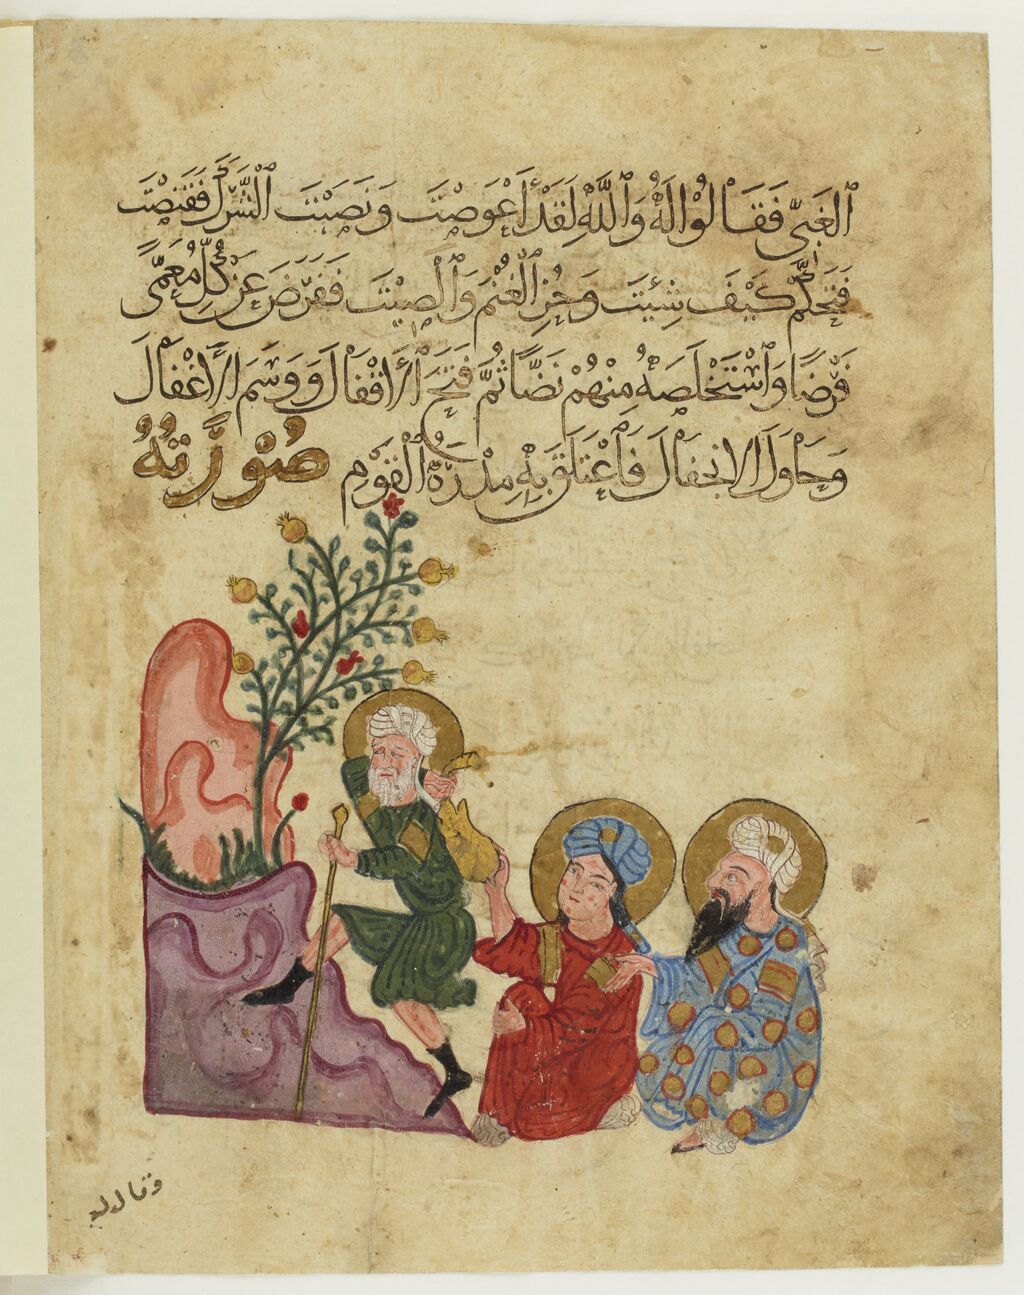 ٱلْغَبِىِّ فَقَالُوْا لَهُ وَٱللَّهِ لَقَدْ أَعْوَصْتَ وَنَصَبْتَ ٱلشَّرَكَ فَقَنَصْتَ
فَتَحَكَّمْ كَيْفَ شِئْتَ وَحُزِ ٱلْغُنْمَ وَٱلصِّيْتَ فَفَرَضَ عَنْ كُلِّ مُعَمًّى
فَرْضًا وَٱسْتَخْلَصَهُ مِنْهُمْ نَضًّا ثُمَّ فَتَحَ ٱلْأَقْفَالَ وَوَسَمَ ٱلْأَغْفَالَ
وَحَاوَلَ ٱلانجفَالَ فَاعْتَلَقَ بِهِ مِدْرَهُ ٱلْقَوْمِ صُوْرَتُهُ
وقال له